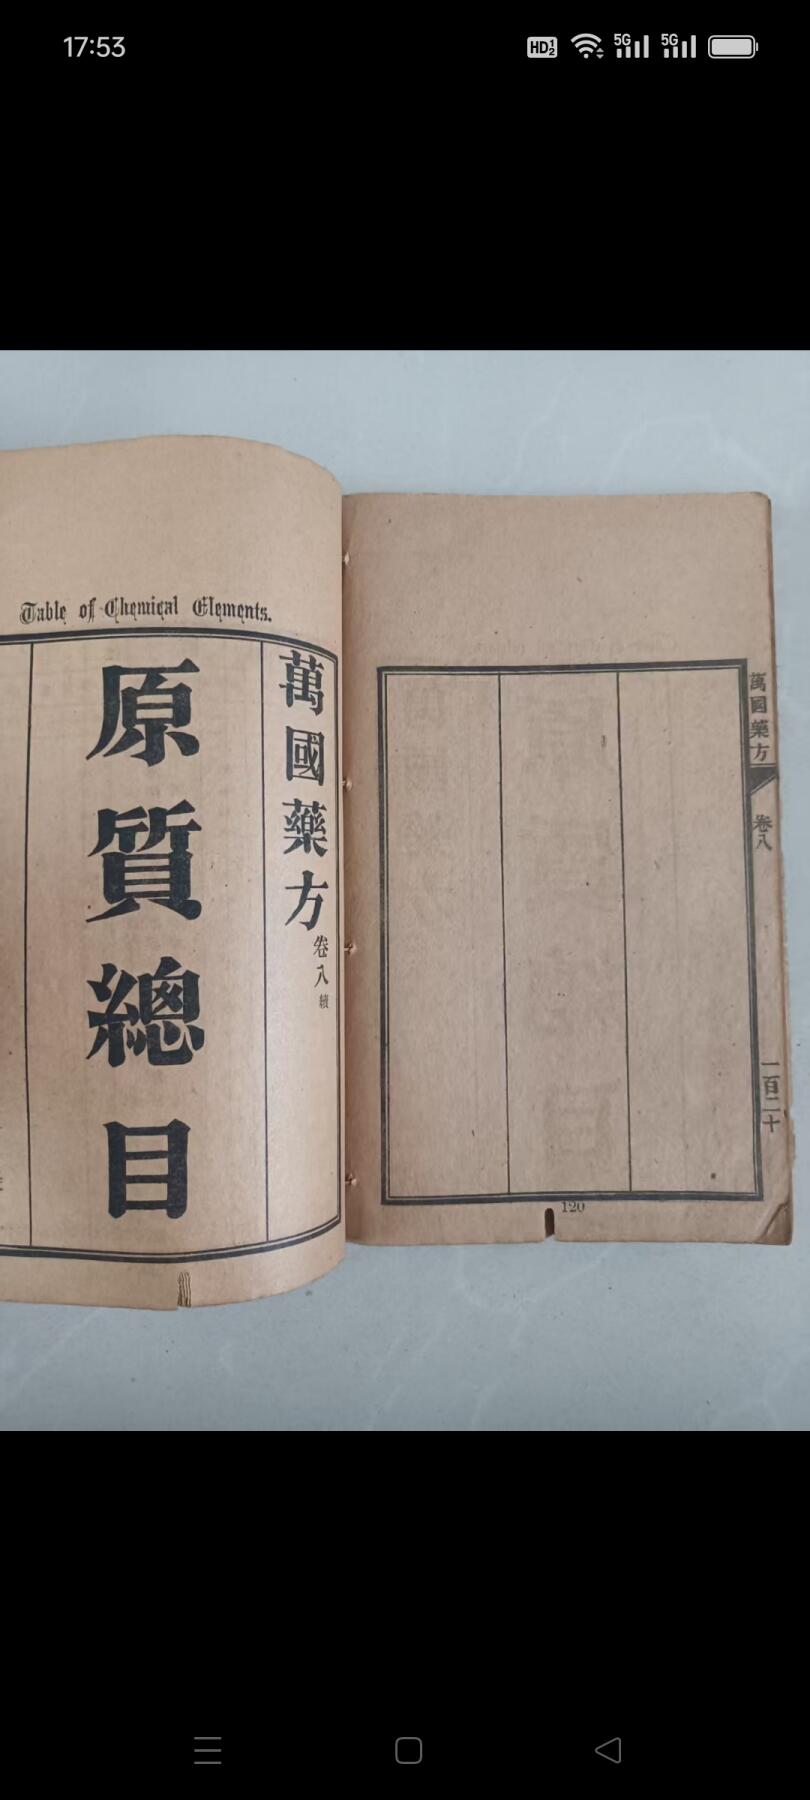 17:53
HD 1 2
5G
5G
Table of Chemical Elements.
萬國藥方
卷八
續
原質總目
萬國藥方
卷八
一百二十
120